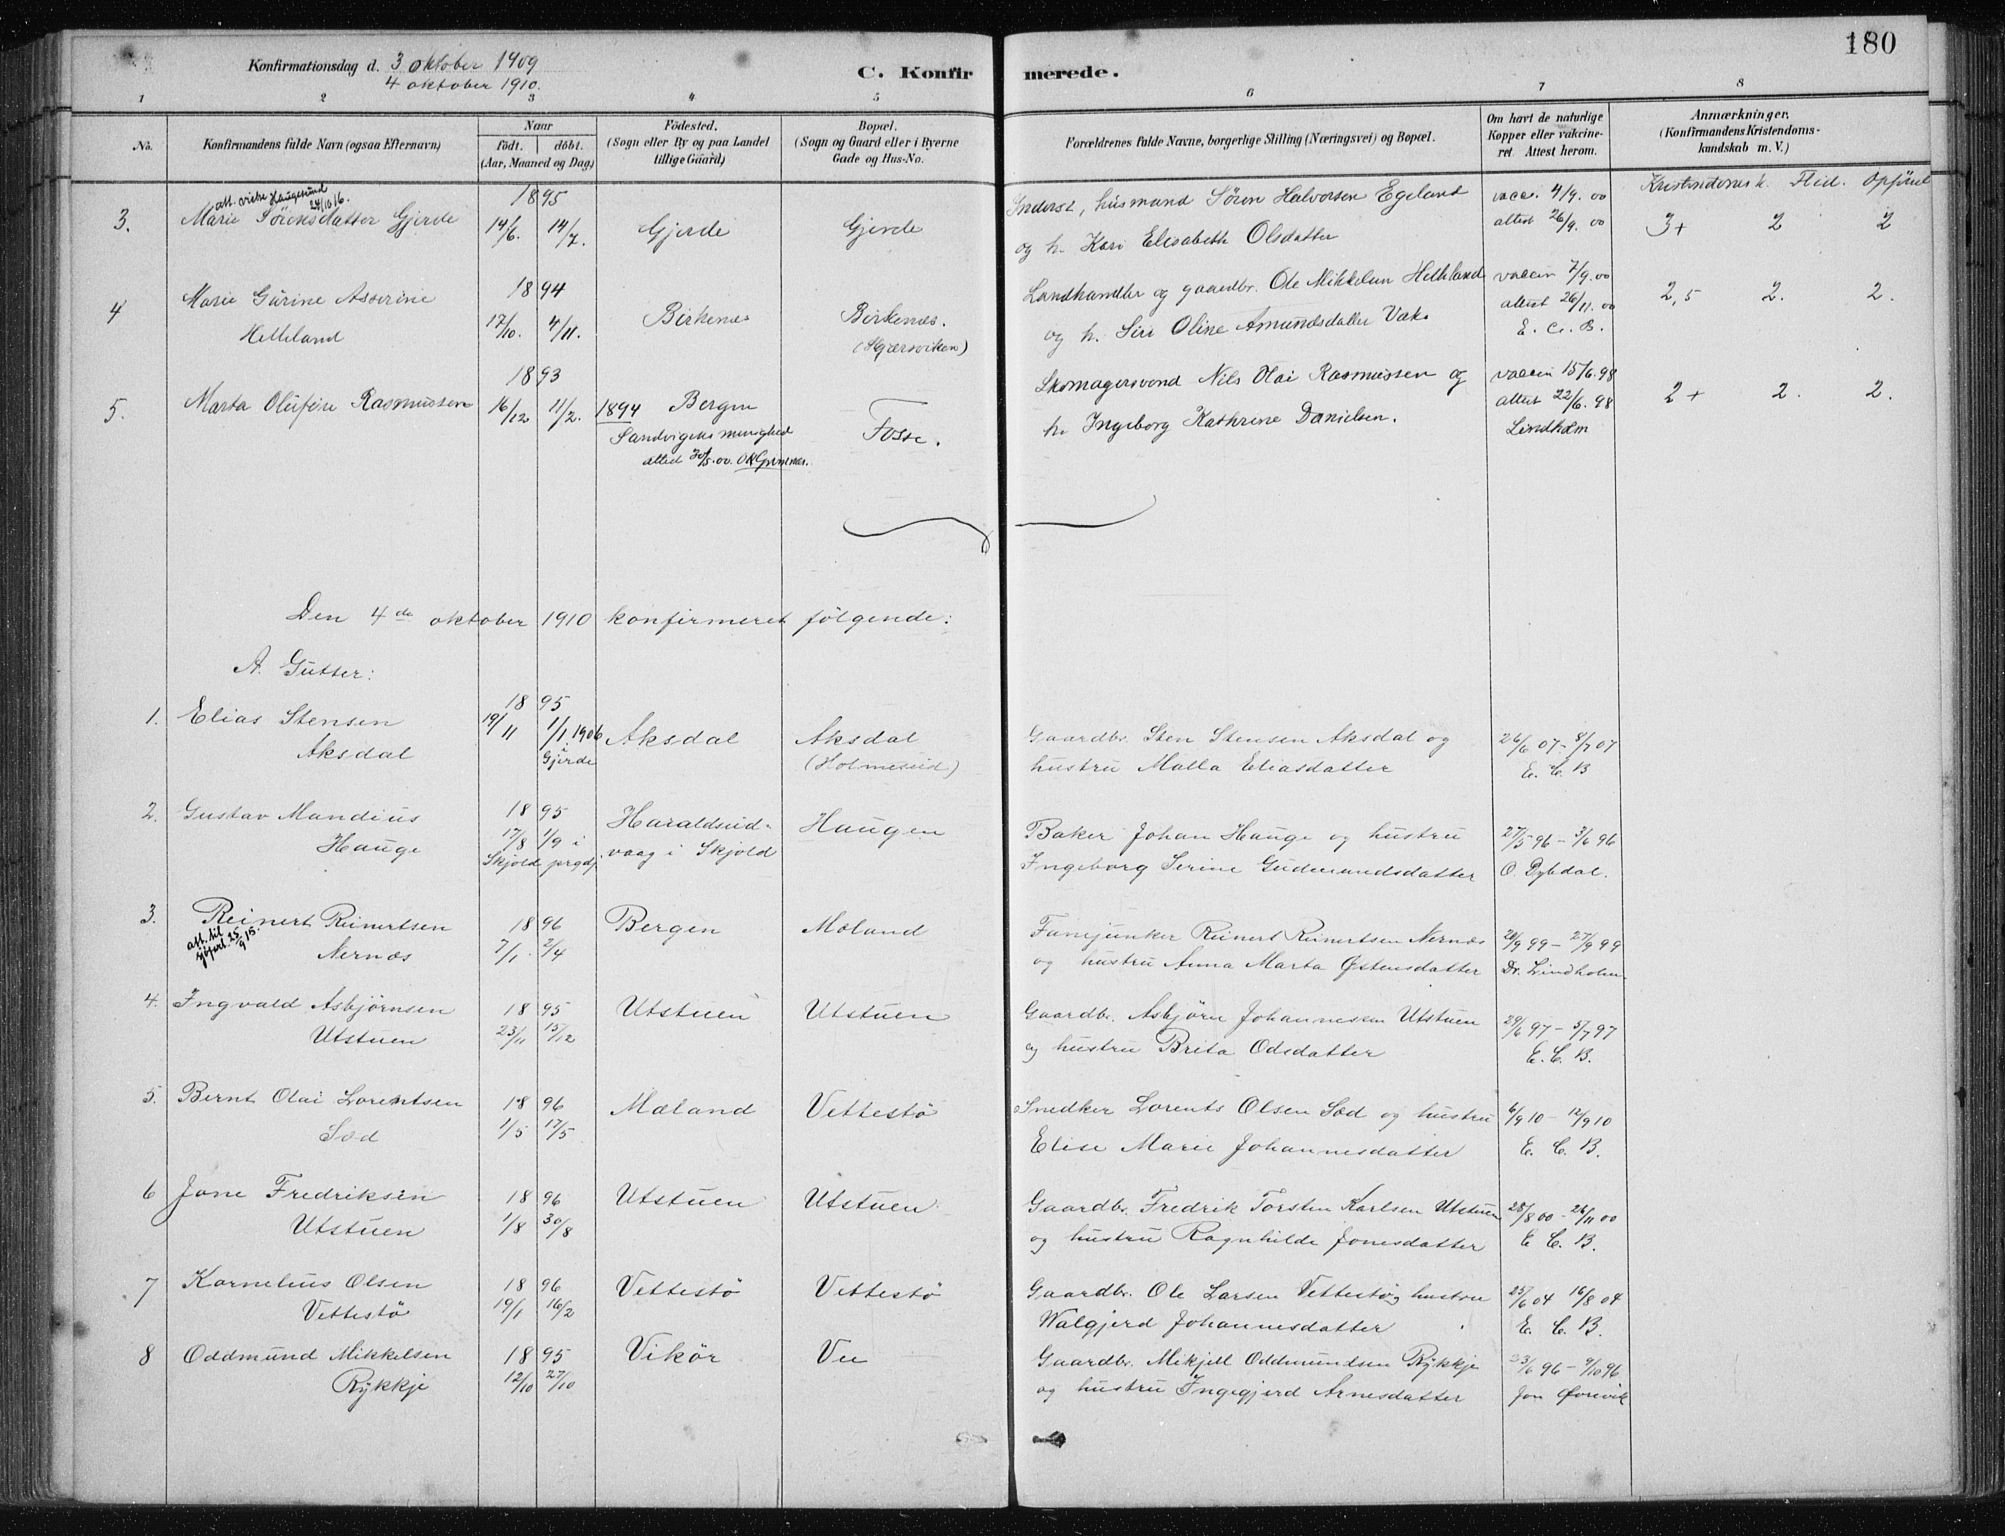 180
Konfirmationsdag d. 3 oktober 1909
4 oktober 1910.
C. Konfirmerede.
1 2 3 4 5 6 7 8
No.
Konfirmandens fulde Navn (ogsaa Efternavn)
Naar
födt. döbt.
(Aar, Maaned og Dag)
Födested.
(Sogn eller By og paa Landet
tillige Gaard)
Bopæl.
(Sogn og Gaard eller i Byerne
Gade og Hus-No.
Forældrenes fulde Navne, borgerlige Stilling (Næringsvei) og Bopæl.
Om havt de naturlige
Kopper eller vakcine-
ret. Attest herom.
Anmærkninger.
(Konfirmandens Kristendoms-
kundskab m. V.)
Kristendomsk. Flid. Opförsel
att. vielse Haugesund
24/10 16.
3. Marie Sörensdatter Gjerde
1895
14/6. 14/7.
Gjerde
Gjerde
Inderst, husmand Sören Halvorsen Egeland
og h. Kari Elisabeth Olsdatter
vacc. 4/9. 00
attest 26/9. 00
3+ 2 2
4 Marie Gurine Asserine
Helleland
1894
17/10. 4/11.
Birkenæs
Birkenæs.
Landhandler og gaardbr. Ole Mikkelsen Helleland
og h. Siri Oline Amundsdatter
vaccin 7/9. 00
attest 26/11. 00
E. C. B.
2,5 2. 2.
5. Marta Olufine Rasmussen
1893
16/12 11/2. 1894
Bergen
Sandvigens menighed
attest
Fosse.
Skomagersvend Nils Olai Rasmussen og
h. Ingeborg Kathrine Danielsen.
vaccin 15/6. 98
attest 22/6. 98
Lindholm
2+ 2. 2.
Den 4de oktober 1910 konfirmeret følgende:
A. Gutter:
1. Elias Stensen
Aksdal
1895
19/11 1/1 1906
i Gjerde
Aksdal
Aksdal
(Holmesund)
Gaardbr. Sten Stensen Aksdal og
hustru Malla Eliasdatter
26/6 07 - 8/7 07
E. C. B
2. Gustav Mandius
Hauge
1895
17/8 1/9 i
Skjold prgdj.
Haraldseid-
vaag i Skjold
Haugen
Baker Johan Hauge og hustru
Ingeborg Serine Gudmundsdatter
27/5 96 - 3/6 96
O. Dybdal.
3. Reinert Reinertsen
Nernæs
att. til
sjøfart 25/9 15.
1896
7/1. 2/4
Bergen
Mæland
Fanejunker Reinert Reinertsen Nernæs
og hustru Anna Marta Østensdatter
20/9 99 - 27/9 99
Dr. Lindholm
4. Ingvald Asbjørnsen
Utstuen
1895
23/11 15/12
Utstuen
Utstuen
Gaardbr. Asbjørn Johannesen Utstuen
og hustru Brita Odsdatter
29/6 97 - 5/7 97
E. C. B.
5. Bernt Olai Lorentsen
Sød
1896
1/5 17/5
Mæland
Vettestö
Snedker Lorents Olsen Sød og hustru
Elise Marie Johannesdatter
6/9 10 - 12/9 10
E. C. B.
6 Jone Fredriksen
Utstuen
1896
1/8 30/8
Utstuen
Utstuen
Gaardbr. Fredrik Torsten Karlsen Utstuen
og hustru Ragnhilde Jonesdatter
28/8 00 - 26/11 00
E. C. B.
7 Kornelius Olsen
Vettestö
1896
19/1 16/2
Vettestö
Vettestö
Gaardbr. Ole Larsen Vettestö og hustru
Walgjerd Johannesdatter
25/6 04 16/8 04
E. C. B.
8 Oddmund Mikkelsen
Rykkje
1895
12/10 27/10
Vikör
Vee
Gaardbr. Mikjell Oddmundsen Rykkje
og hustru Ingegjerd Arnesdatter
23/6 96 - 9/10 96
Jon